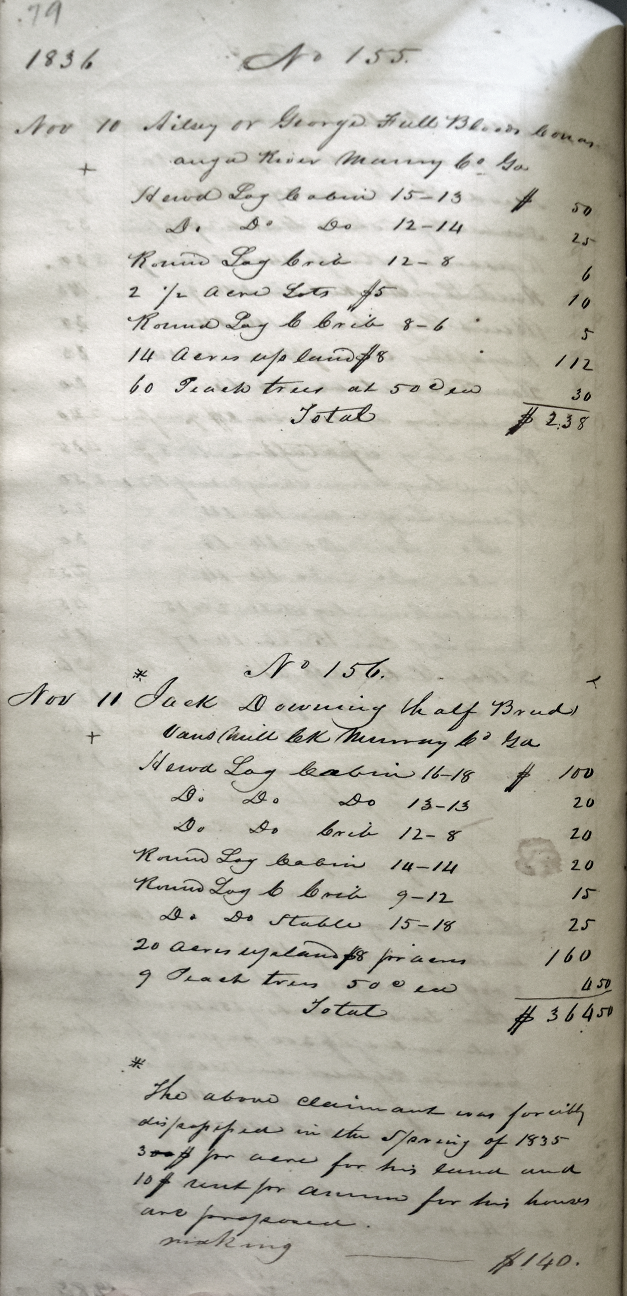 79
1836 No 155.
Nov 10 Ailsey or George Full Bloods Conas
+ auga River Murray Co Ga
Hewd Log Cabin 15-13 $ 50
Do Do Do 12-14 25
Round Log Crib 12-8 6
2 1/2 Acre Lots $5 10
Round Log C Crib 8-6 5
14 Acres upland $8 112
60 Peach trees at 50c ea 30
Total $ 238
* No 156.
Nov 11 Jack Downing (half Breed)
+ Vans Mill CK Murray Co Ga
Hewd Log Cabin 16-18 $ 100
Do Do Do 13-13 20
Do Do Crib 12-8 20
Round Log Cabin 14-14 20
Round Log C Crib 9-12 15
Do Do Stable 15-18 25
20 Acres upland $8 pr acre 160
9 Peach trees 50c ea 4 50
Total $ 364 50
*
The above claimant was forcibly
dispossessed in the Spring of 1835
3 $ pr acre for his land and
10$ rent pr annum for his houses
are proposed.
making $140.